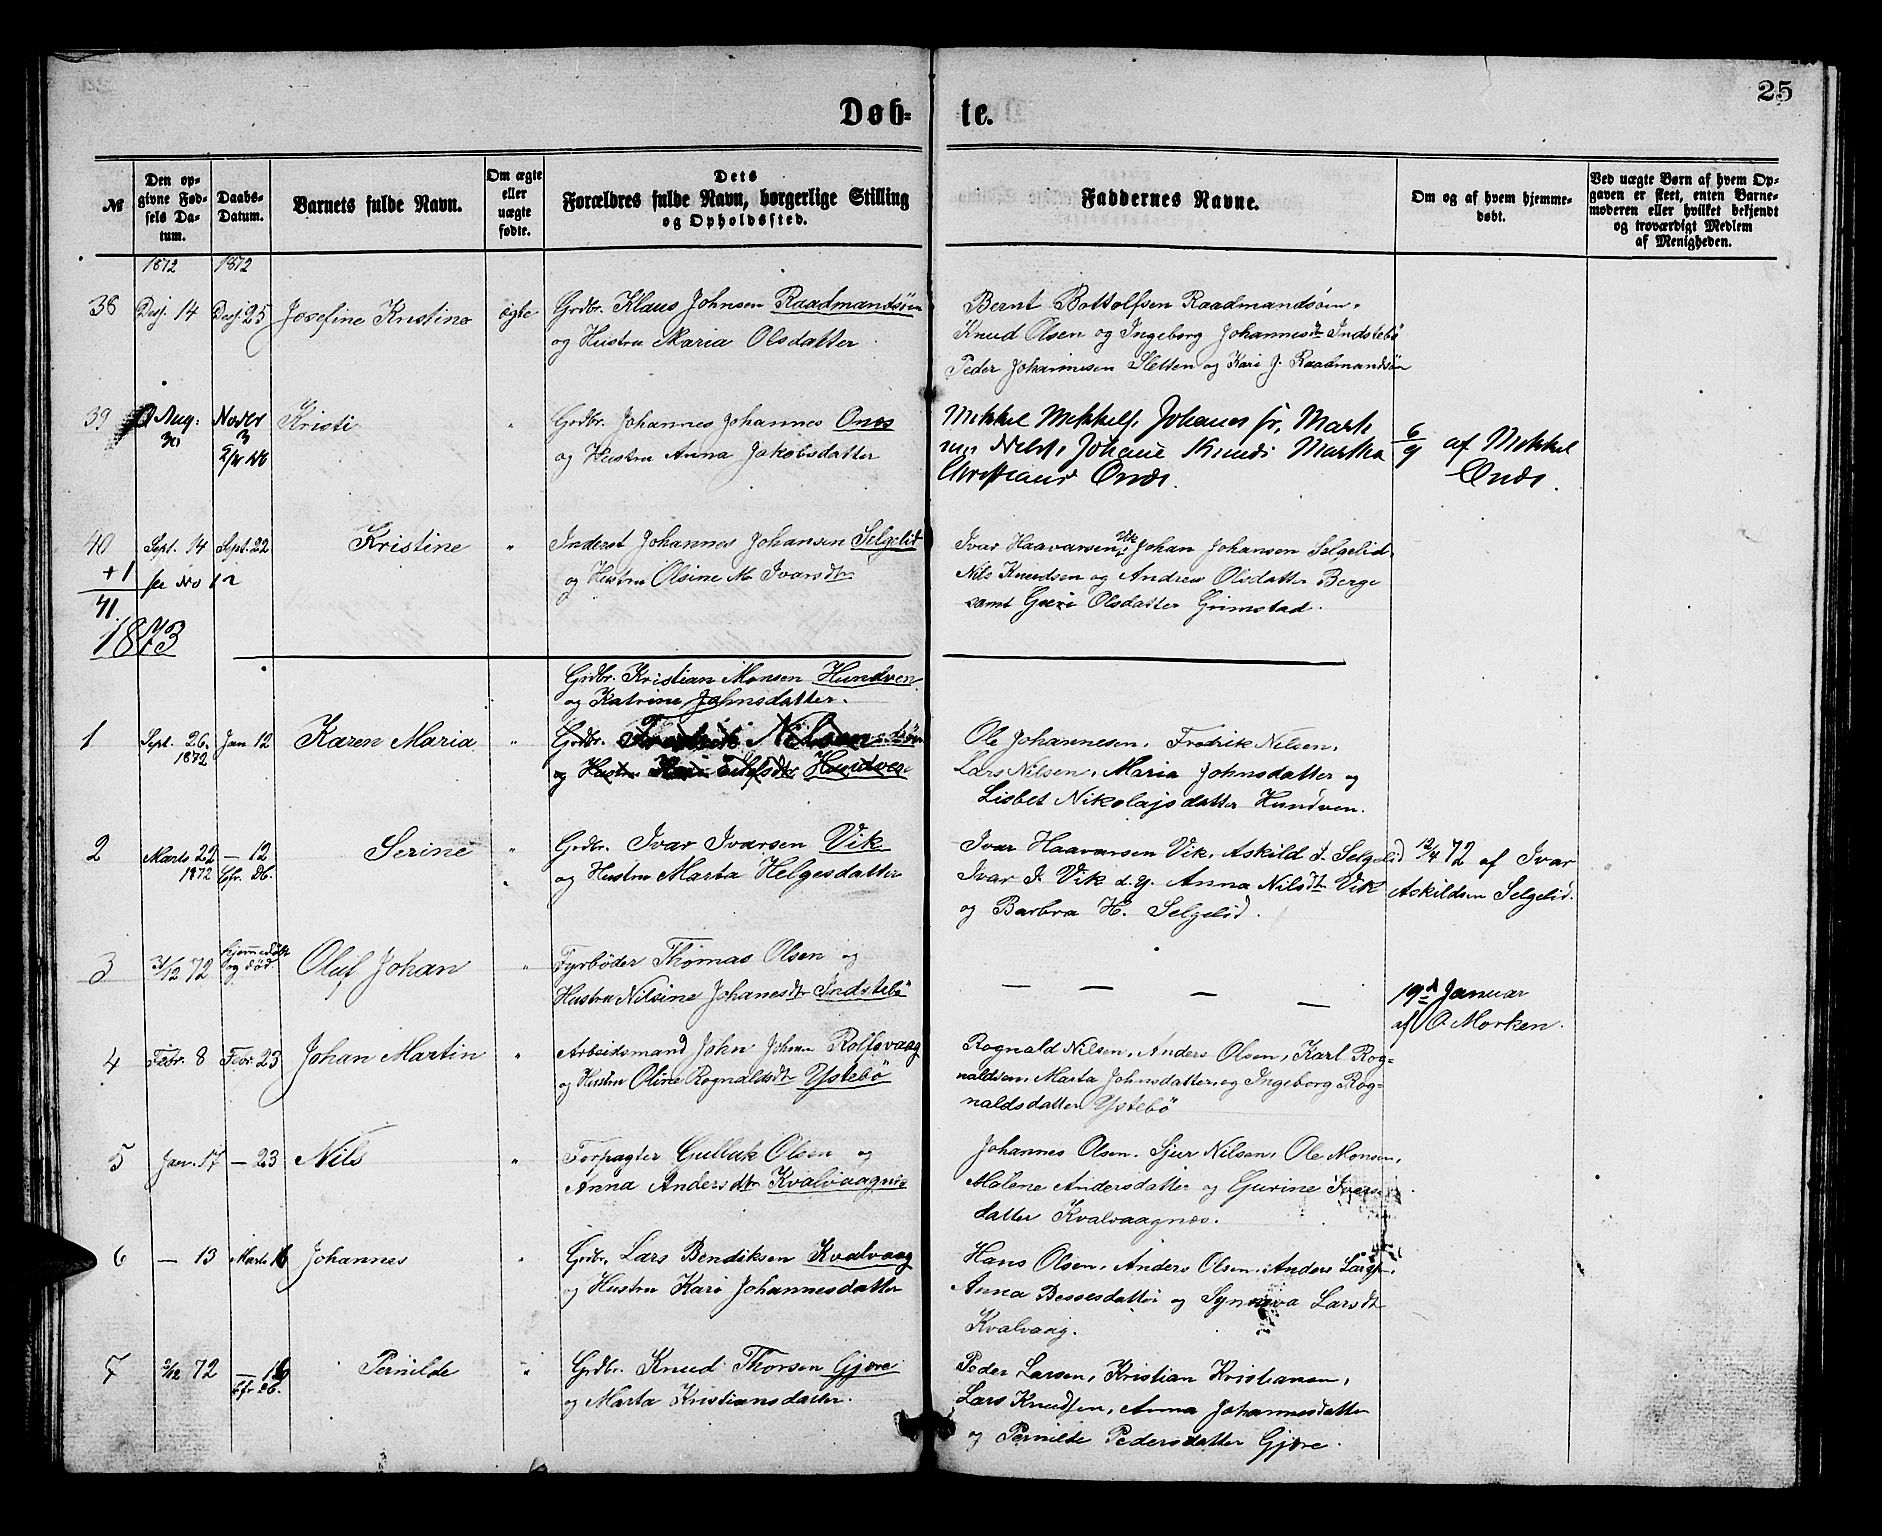 25
Døb= te.
№
Den opgivne Fødsels Datum.
Daabs-Datum.
Barnets fulde Navn.
Om ægte eller uægte fødte.
Dets Forældres fulde Navn, borgerlige Stilling og Opholdssted.
Faddernes Navne.
Om og af hvem hjemmedøbt.
Ved uægte Børn af hvem Opgaven er skeet, enten Barnemoderen eller hvilket bekjendt og troværdigt Medlem af Menigheden.
1872 1872
38 Desj. 14 Desj. 25 Josefine Kristine ægte Grdbr. Klaus Johnsen Raadmandsöen
og Hustru Maria Olsdatter
Bernt Bottolfsen Raadmandsöen.
Knud Olsen og Ingeborg Johannesdtr Indstebö
Peder Johannesen Sletten og Kari J. Raadmandsöen
39 Aug: 30 Novbr 3 Kristi " Grdbr. Johannes Johannes Onæs
og Hustru Anna Jakobsdatter
Mekkel Mekkels. Johanes
Nels. Johane Knuds Martha
Christians Ondes.
6/9 af Mekkel
Ondes.
40 Sept. 14 Sept. 22 Kristine " Inderst Johannes Johansen Selgelid
og Hustru Olsine M. Ivarsdtr
Ivar Haavarsen Vik, Johan Johansen Selgelid.
Nils Knudsen og Andrea Olsdatter Berge
samt Guri Olsdatter Grimstad.
+1 se No 12
41.
1873
Grdbr. Kristian Monsen Hundven
og Katrine Johnsdatter.
1 Sept. 26. 1872 Jan 12 Karen Maria " Grdbr. Fredrik Nilsen
og Hustru Hundven
Ole Johannesen, Fredrik Nilsen,
Lars Nilsen, Maria Johnsdatter og
Lisbet Nikolajsdatter Hundven.
2 Marts 22 1872 — 12 Cfr. Db. Serine " Grdbr. Ivar Ivarsen Vik
og Hustru Marta Helgesdatter
Ivar Haavarsen Vik, Askild I. Selgelid
Ivar I. Vik d. y. Anna Nilsdtr Vik
og Barbra H. Selgelid.
12/4 72 af Ivar
Askildsen Selgelid.
3 31/12 72 hjemmedöbt og död Oluf Johan " Fyrböder Thomas Olsen og
Hustru Nilsine Johanesdtr Indstebö
— — — —
19de Januar
af O Morken.
4 Febr. 8 Febr. 23 Johan Martin " Arbeidsmand John Johan Rolfsvaag
og Hustru Oline Rognaldsdtr Ystebö
Rognald Nilsen, Anders Olsen, Karl Rog-
naldsen, Marta Johnsdatter, og Ingeborg Rog-
naldsdatter Ystebö
5 Jan. 17 — 23 Nils " Forpagter Gulluk Olsen og
Anna Andersdtr Kvalvaagnes
Johannes Olsen. Sjur Nilsen, Ole Monsen,
Malene Andersdatter og Gurine Ivers-
datter Kvalvaagnes.
6 — 13 Marts 16 Johannes " Grdbr. Lars Bendiksen Kvalvaag
og Hustru Kari Johannesdatter
Hans Olsen, Anders Olsen, Anders Larss.
Anna Bessesdatter og Synneva Larsdt
Kvalvaag.
7 2/12 72 — 16 Cfr Db. Pernilde " Grdbr. Knud Thorsen Gjøre
og Marta Kristiansdatter.
Peder Larsen, Kristian Kristiansen,
Lars Knudsen, Anna Johannesdatter
og Pernilde Pedersdatter Gjøre.